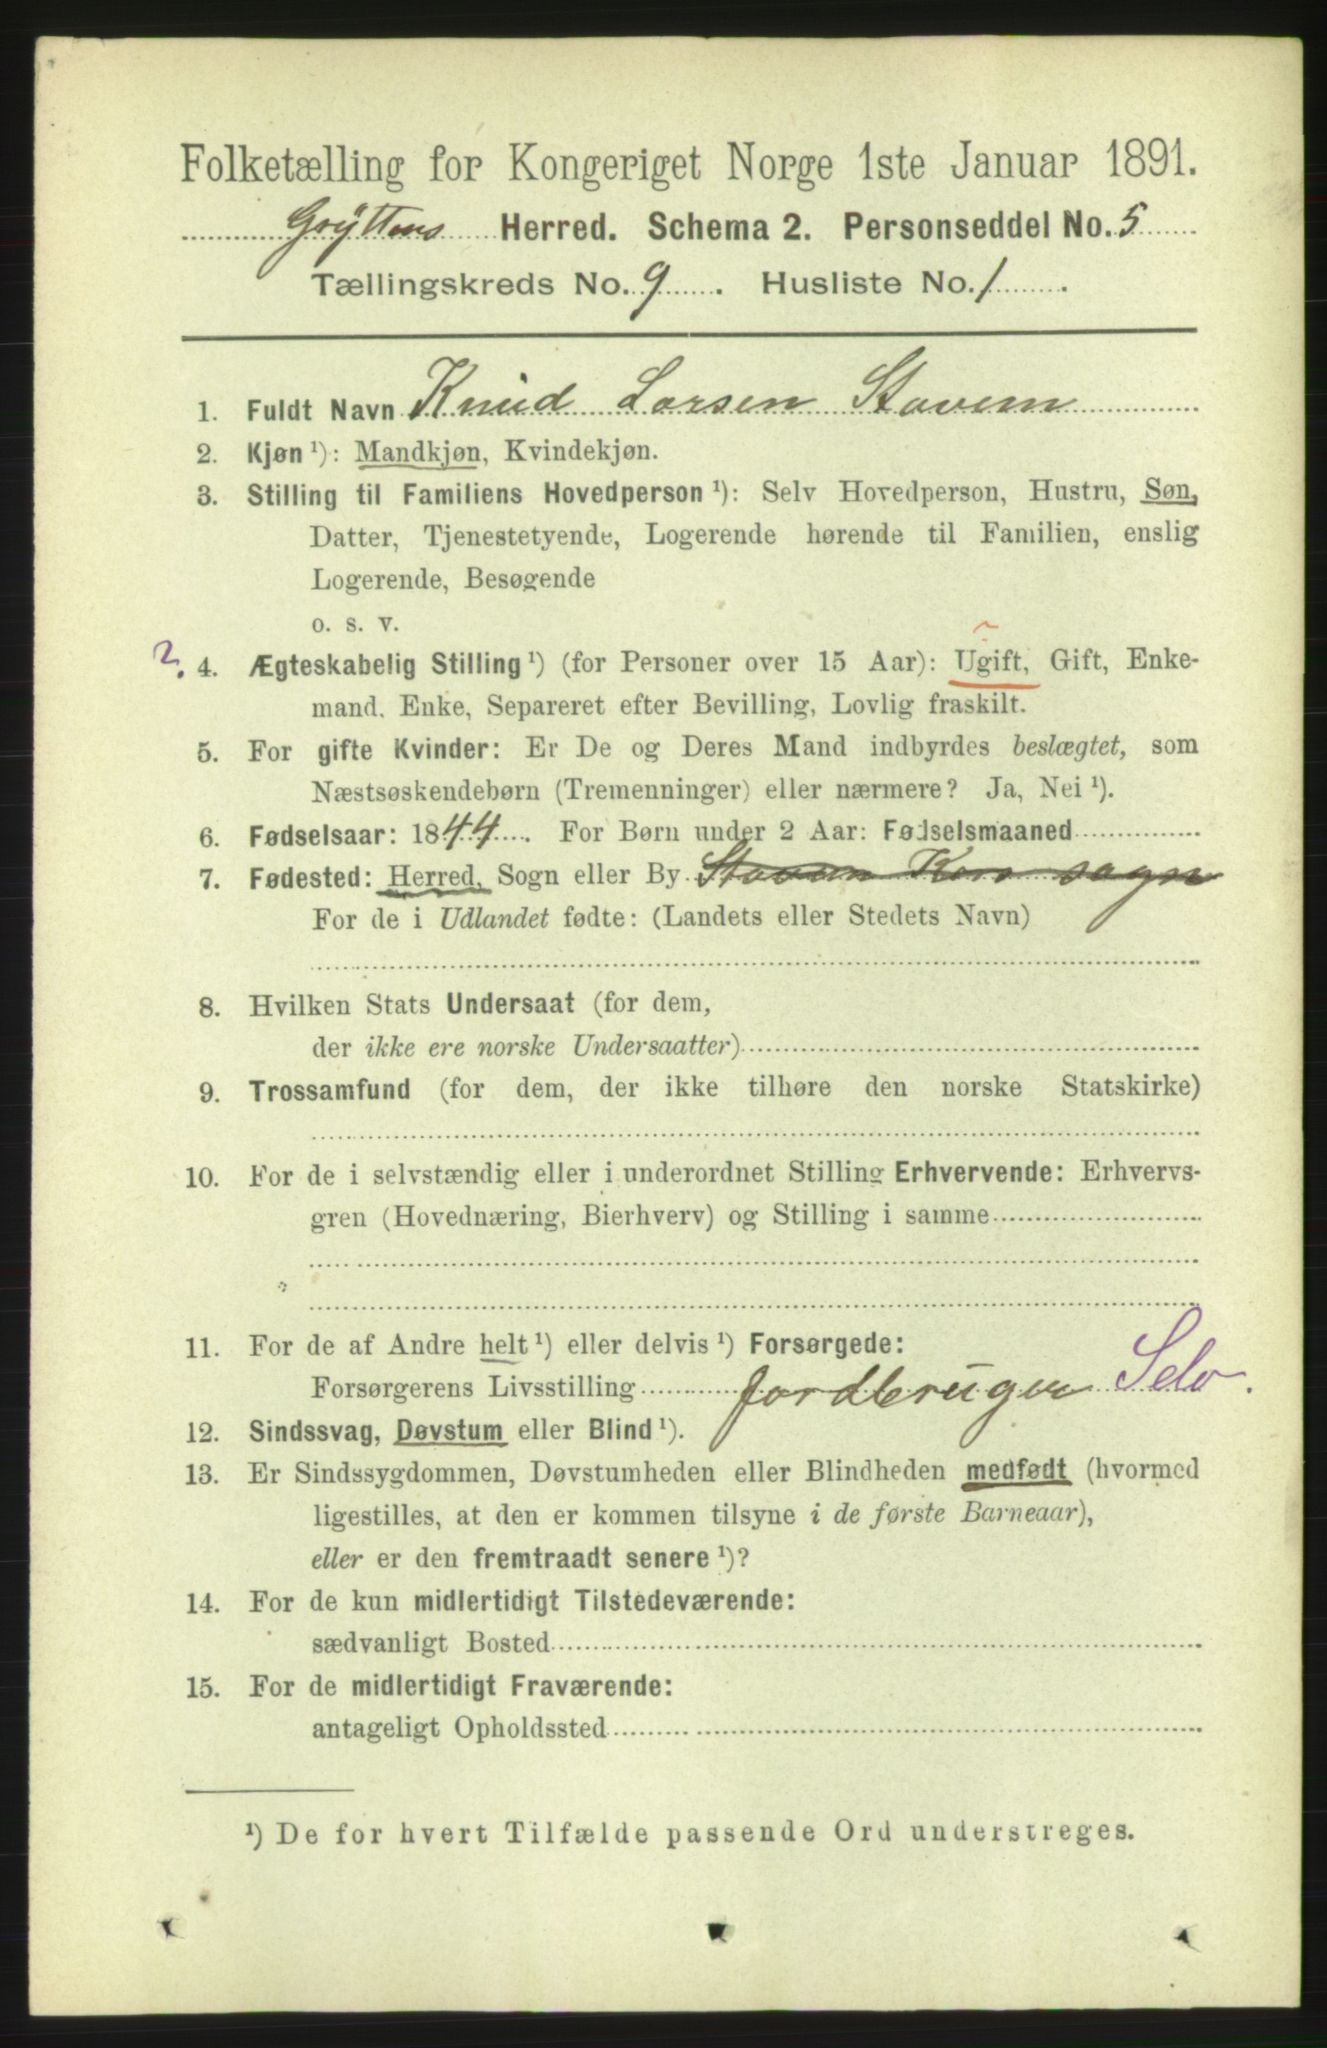 Folketælling for Kongeriget Norge 1ste Januar 1891.
Grÿttens Herred. Schema 2. Personseddel No. 5
Tællingskreds No. 9. Husliste No. 1.
1. Fuldt Navn Knud Larsen Stavem
2. Kjøn ¹): Mandkjøn, Kvindekjøn.
3. Stilling til Familiens Hovedperson ¹): Selv Hovedperson, Hustru, Søn,
Datter, Tjenestetyende, Logerende hørende til Familien, enslig
Logerende, Besøgende
o. s. v.
2. 4. Ægteskabelig Stilling ¹) (for Personer over 15 Aar): Ugift, Gift, Enke-
mand, Enke, Separeret efter Bevilling, Lovlig fraskilt.
5. For gifte Kvinder: Er De og Deres Mand indbyrdes beslægtet, som
Næstsøskendebørn (Tremenninger) eller nærmere? Ja, Nei ¹).
6. Fødselsaar: 1844. For Børn under 2 Aar: Fødselsmaaned
7. Fødested: Herred, Sogn eller By Stavem Kors sogn
For de i Udlandet fødte: (Landets eller Stedets Navn)
8. Hvilken Stats Undersaat (for dem,
der ikke ere norske Undersaatter)
9. Trossamfund (for dem, der ikke tilhøre den norske Statskirke)
10. For de i selvstændig eller i underordnet Stilling Erhvervende: Erhvervs-
gren (Hovednæring, Bierhverv) og Stilling i samme
11. For de af Andre helt ¹) eller delvis ¹) Forsørgede:
Forsørgerens Livsstilling Jordbruger Selv.
12. Sindssvag, Døvstum eller Blind ¹).
13. Er Sindssygdommen, Døvstumheden eller Blindheden medfødt (hvormed
ligestilles, at den er kommen tilsyne i de første Barneaar),
eller er den fremtraadt senere ¹)?
14. For de kun midlertidigt Tilstedeværende:
sædvanligt Bosted
15. For de midlertidigt Fraværende:
antageligt Opholdssted
¹) De for hvert Tilfælde passende Ord understreges.